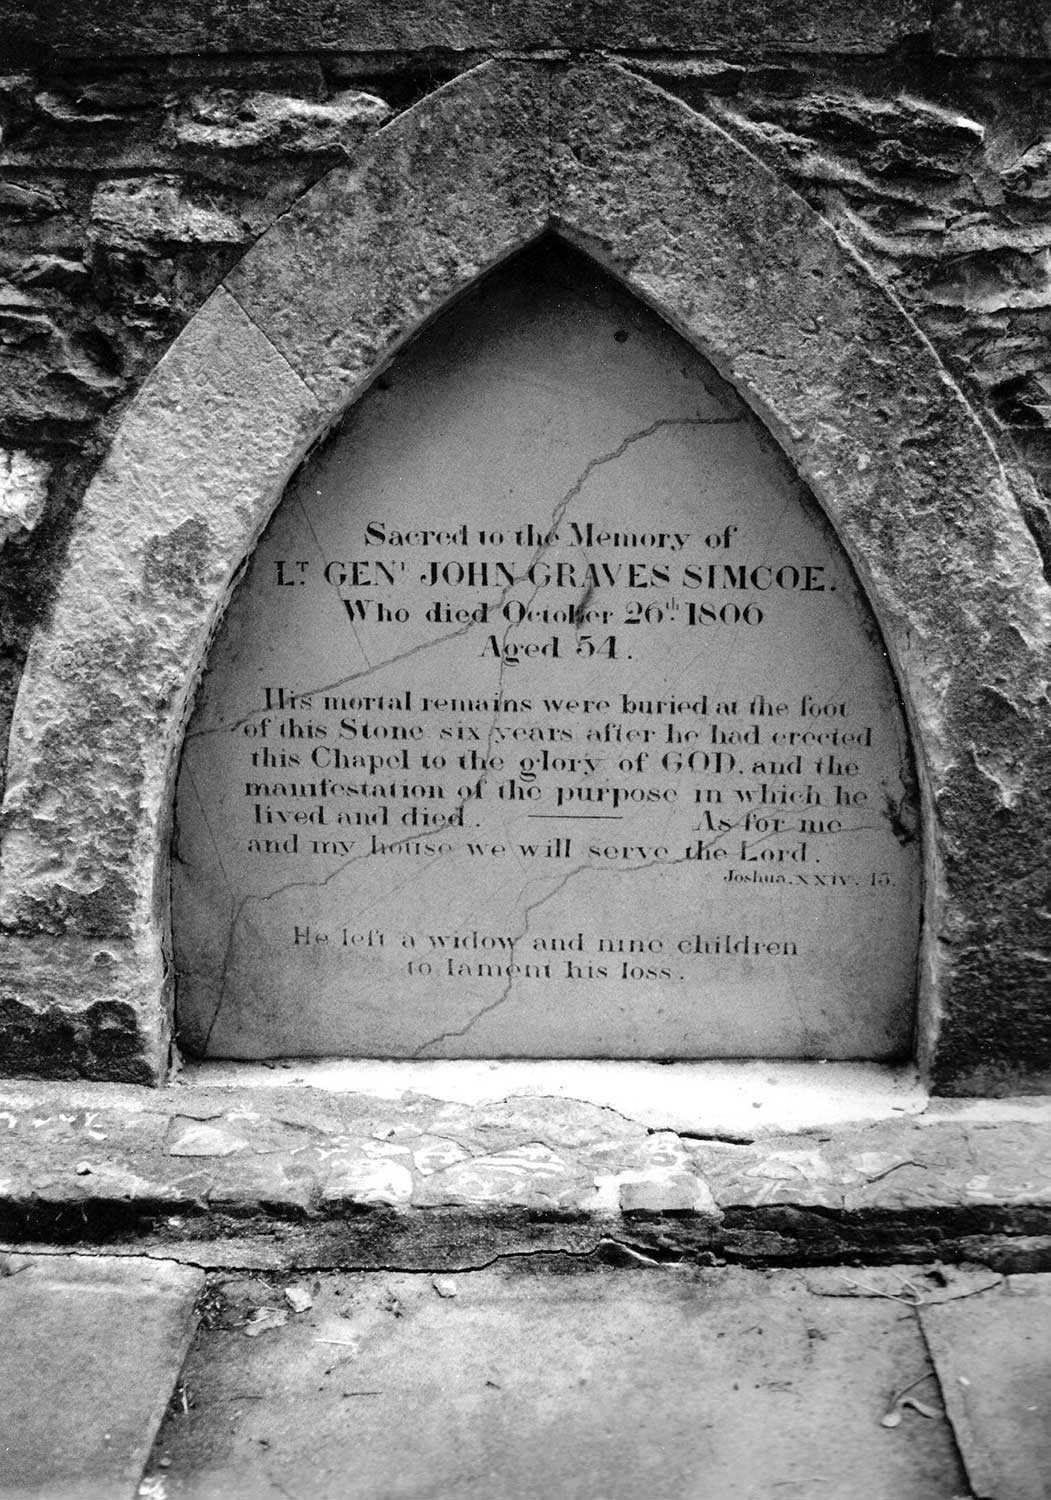 Sacred to the Memory of
LT. GENl JOHN GRAVES SIMCOE.
Who died October 26th. 1806
Aged 54.
His mortal remains were buried at the foot
of this Stone six years after he had erected
this Chapel to the glory of GOD, and the
manifestation of the purpose in which he
lived and died. —— As for me
and my house we will serve the Lord.
Joshua. XXIV. 15.
He left a widow and nine children
to lament his loss.